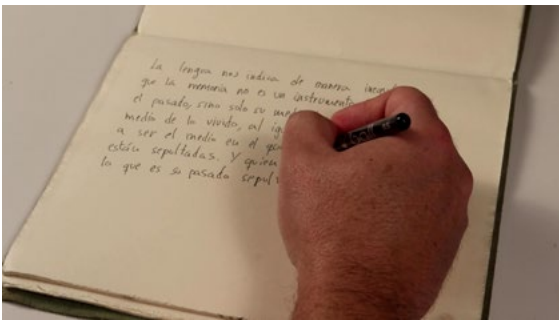 La lengua nos indica de manera
que la memoria no es un instrumento
el pasado, sino solo su
medio de lo vivido, al
a ser el medio en el
están sepultadas. Y quien
lo que es su pasado